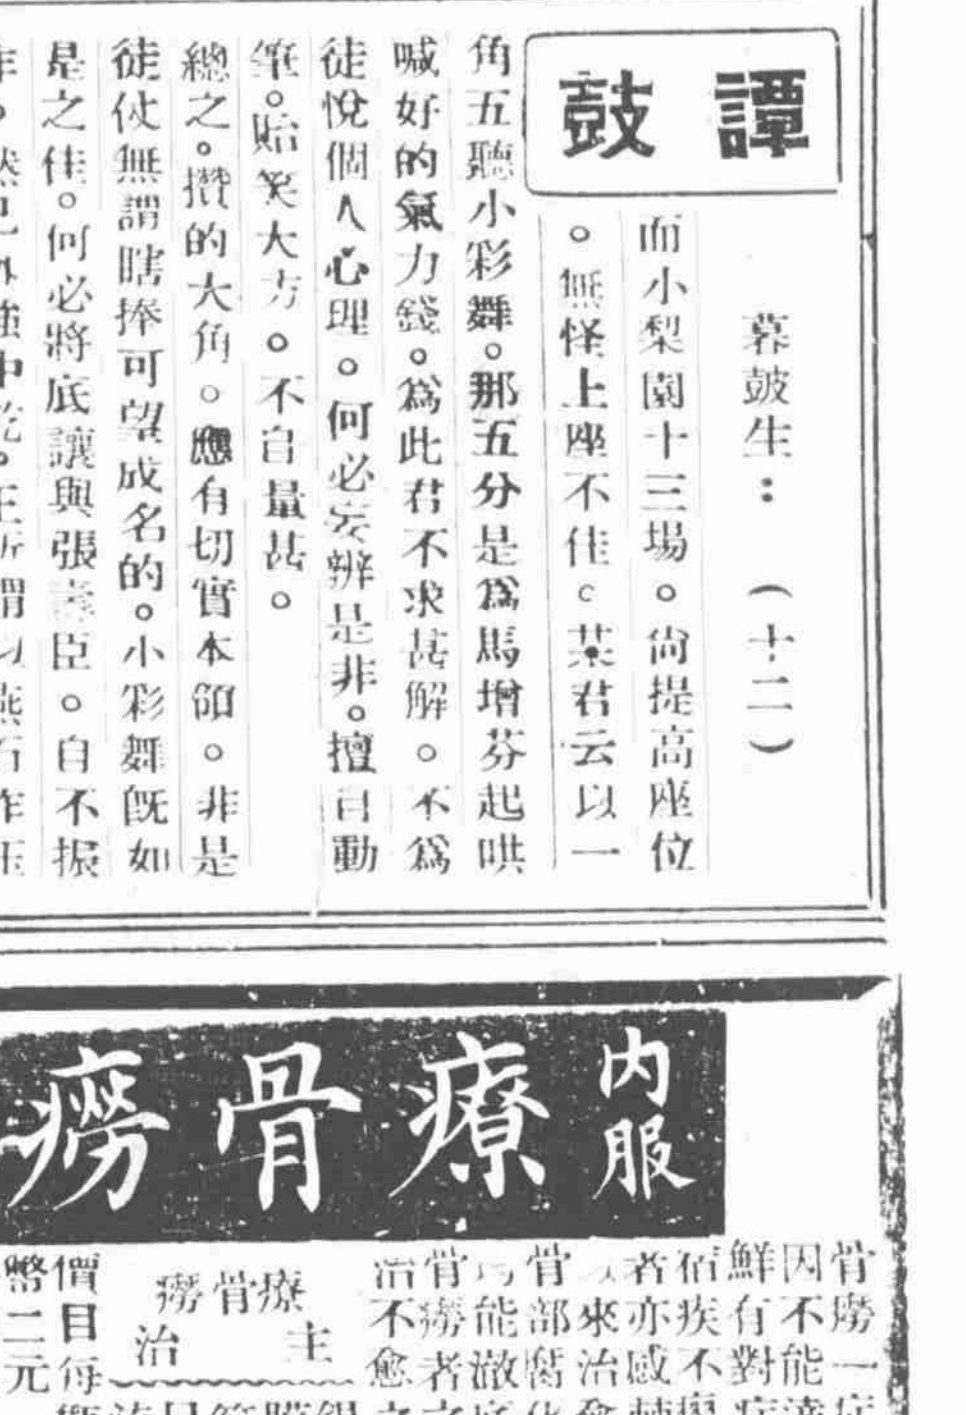 譚鼓
暮鼓生：（十二）
而小梨園十三場。尙提高座位
。無怪上座不佳。某君云以一
角五聽小彩舞。那五分是爲馬增芬起哄
喊好的氣力錢。爲此君不求甚解。不爲
徒悅個人心理。何必妄辦是非。擅自動
筆。貽笑大方。不自量甚。
總之。攢的大角。應有切實本領。非是
徒仗無謂瞎捧可望成名的。小彩舞旣如
是之佳。何必將底讓與張壽臣。自不振
內服
療骨癆
骨癆一
因不能
鮮有對
宿疾不
者亦感
來治
骨部腐
能澈
骨癆者
治不愈
療骨癆
主治
價目每
幣二元